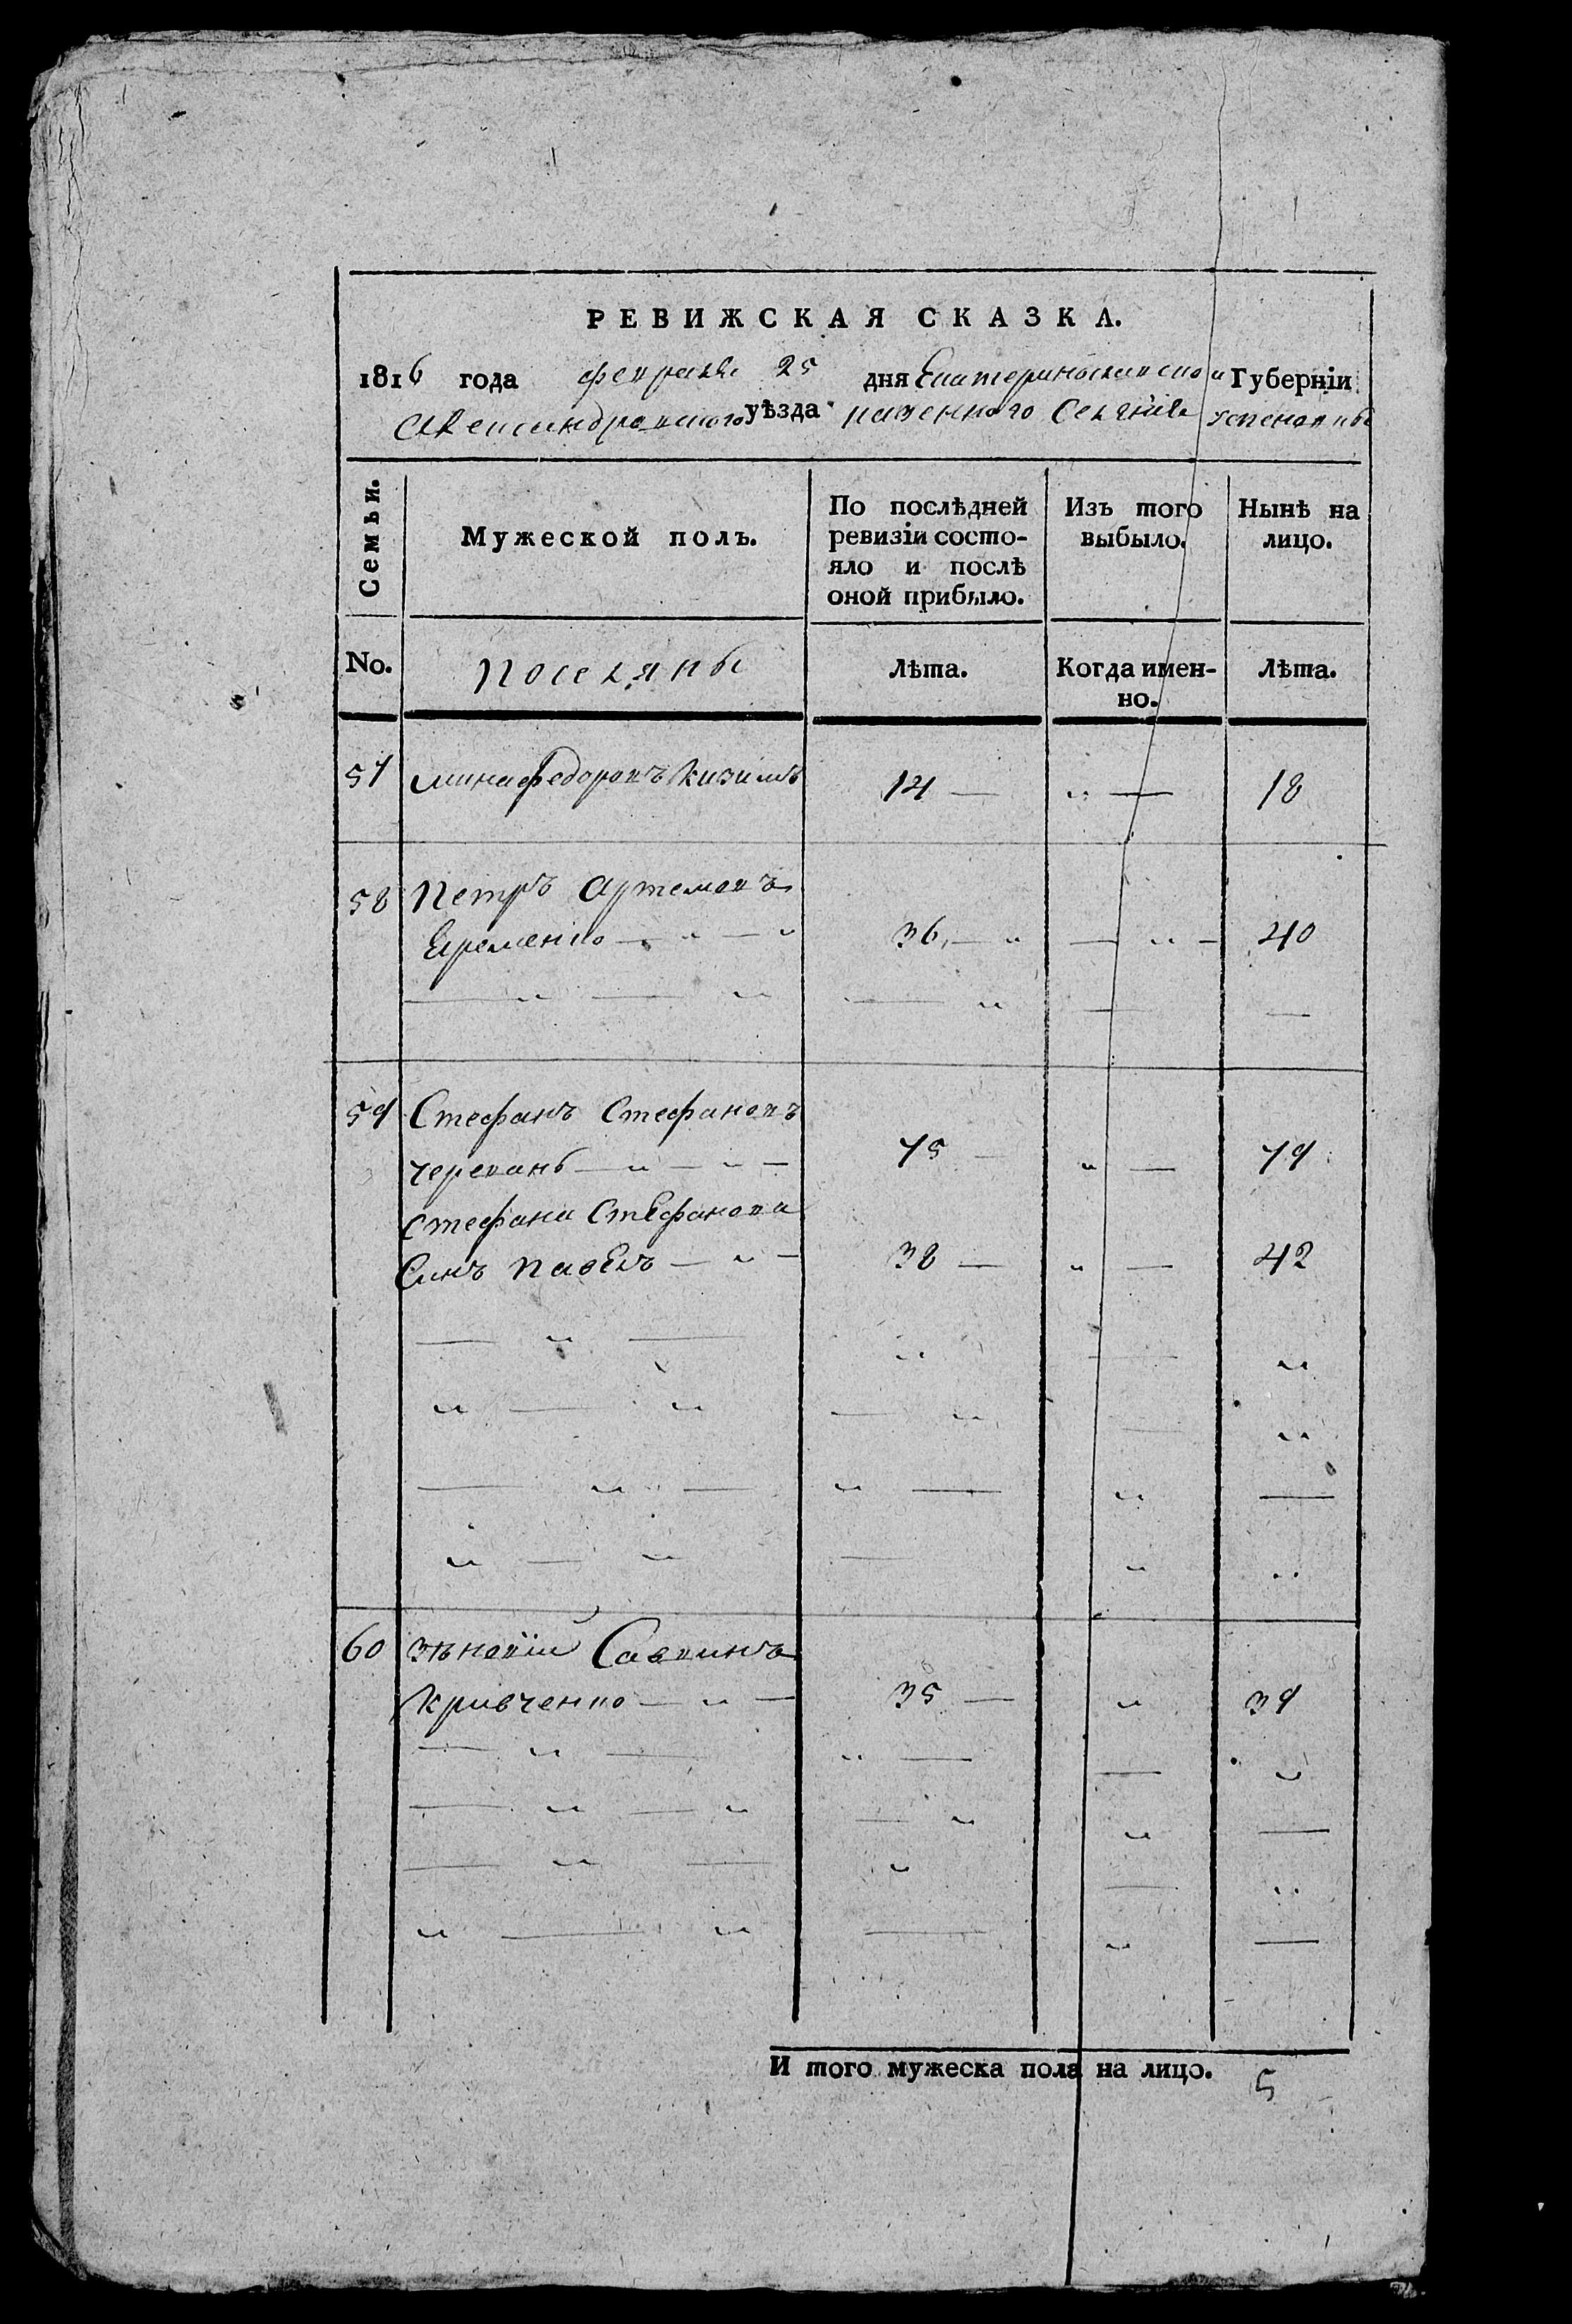 РЕВИЖСКАЯ СКАЗКА.
1816 года февраля 25 дня Екатеринославской Губерніи
Александровского уѣзда казенного Селения Успеновки
Семьи.
Мужеской полъ.
По послѣдней ревизіи состо-
яло и послѣ
оной прибыло.
Изъ того
выбыло.
Нынѣ на
лицо.
No.
Поселяны
Лѣта.
Когда имен-
но.
Лѣта.
57 Мина Федоровъ Кизимъ 14 — „ — 18
58 Петръ Артемовъ
Еременко — „ — „ 36 — „ — „ — 40
59 Стефанъ Стефановъ
Черевань — „ — „ — 75 — „ — 79
Стефана Стефанова
Синъ Павелъ — „ — 38 — „ — 42
60 Зѣновій Саввинъ
Кривченко — „ — 35 — „ 39
И того мужеска пола на лицо. 5